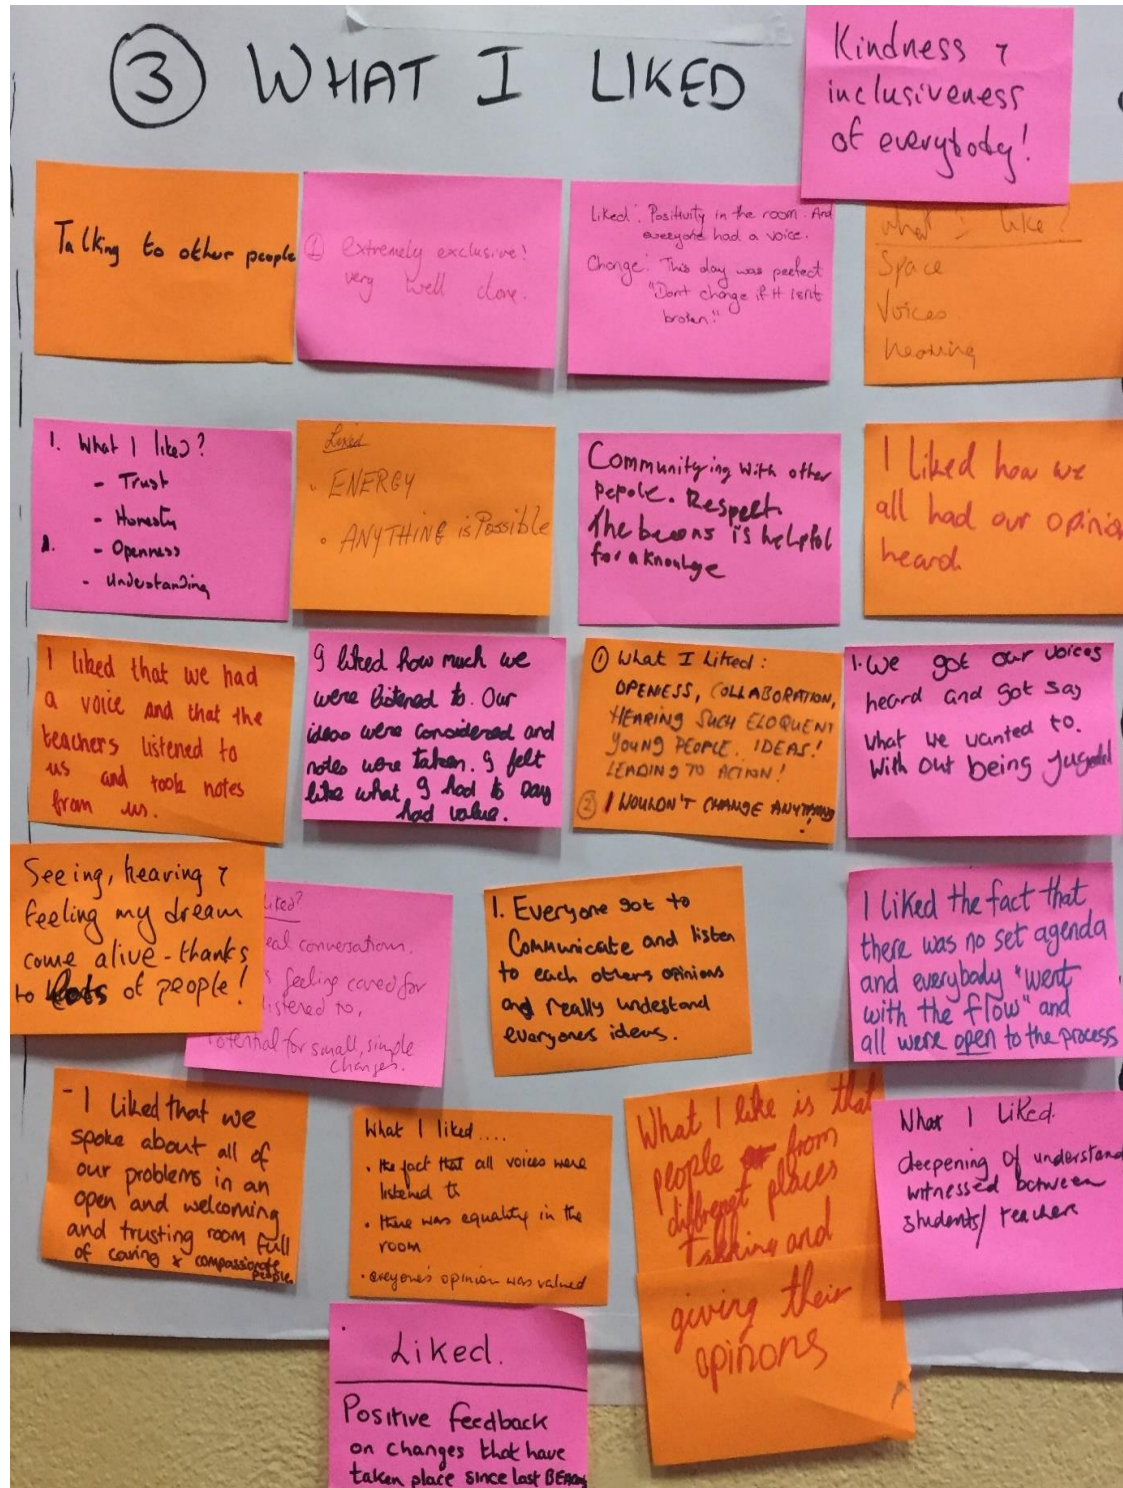 ③ WHAT I LIKED
Kindness &
inclusiveness
of everybody!
Talking to other people
① extremely exclusive!
very well done.
Liked: Positivity in the room. And
everyone had a voice.
Change: This day was perfect
"Dont change if it isnt
broken."
What I like?
Space
Voices
hearing
1. What I liked?
- Trust
- Honesty
- Openness
- Understanding
Liked
• ENERGY
• ANYTHING is Possible
Communitying with other
pepole. Respect.
The beacons is helpful
for a knowlege
I liked how we
all had our opinion
heard.
I liked that we had
a voice and that the
teachers listened to
us and took notes
from us.
I liked how much we
were listened to. Our
ideas were considered and
notes were taken. I felt
like what I had to say
had value.
① What I Liked:
OPENESS, COLLABORATION,
HEARING SUCH ELOQUENT
YOUNG PEOPLE. IDEAS!
LEADING TO ACTION!
② I WOULDN'T CHANGE ANYTHING!
1. We got our voices
heard and got say
what we wanted to.
With out being
Seeing, hearing &
feeling my dream
come alive - thanks
to lots of people!
liked?
real conversations.
feeling cared for
listened to,
Potential for small, simple
changes.
1. Everyone got to
Communicate and listen
to each others opinions
and really undestand
everyones ideas.
I liked the fact that
there was no set agenda
and everybody "went
with the flow" and
all were open to the process
- I liked that we
spoke about all of
our problems in an
open and welcoming
and trusting room full
of caring & compassionate
people.
What I liked....
• the fact that all voices were
listened to
• there was equality in the
room
• everyone's opinion was valued
What I like is that
people from
different places
Talking and
giving their
opinons
What I Liked.
deepening of understand
witnessed between
students/teachers
Liked.
Positive feedback
on changes that have
taken place since last BEACON